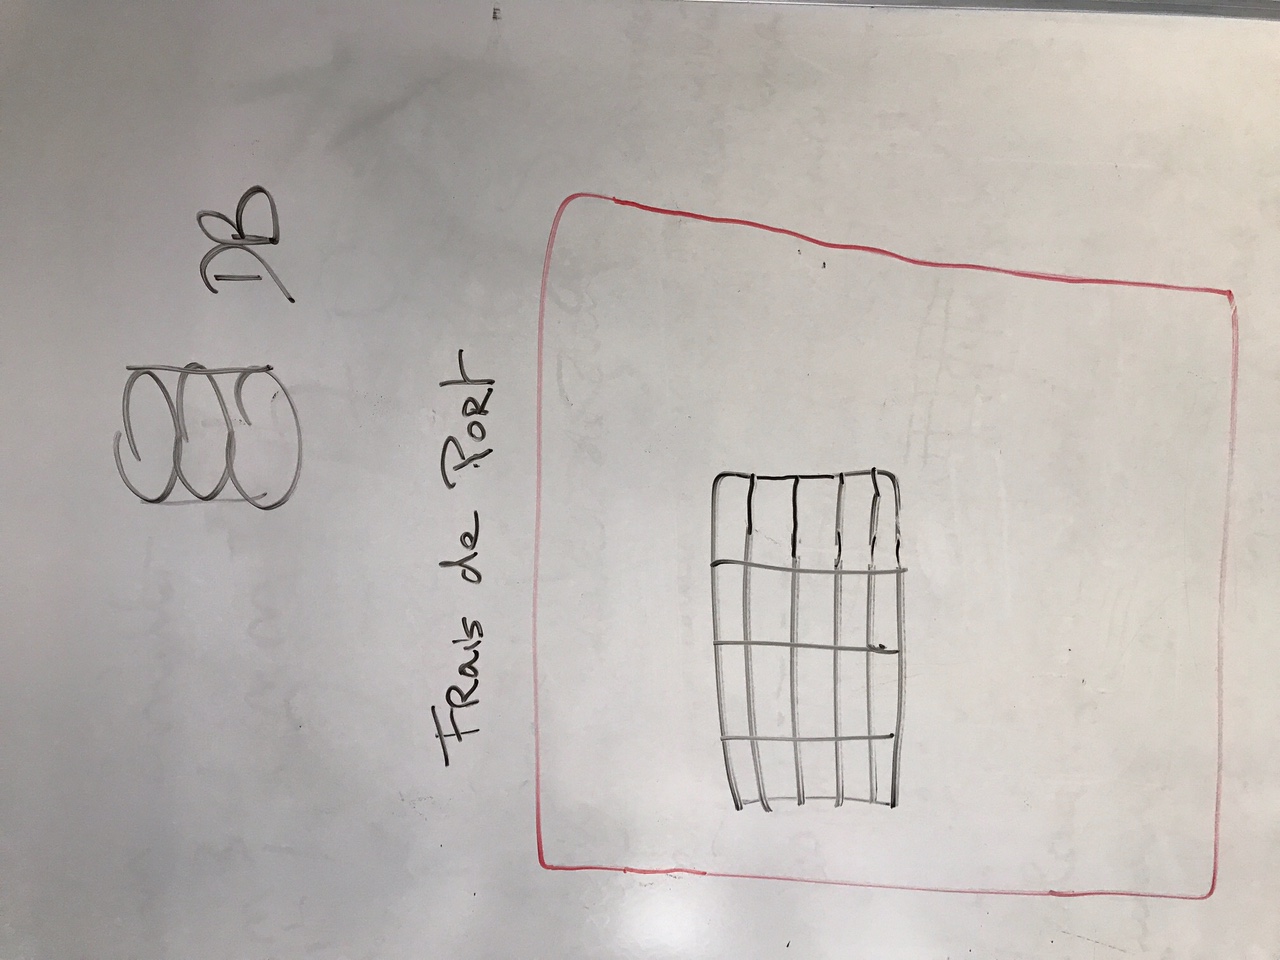 DB
Frais de Port